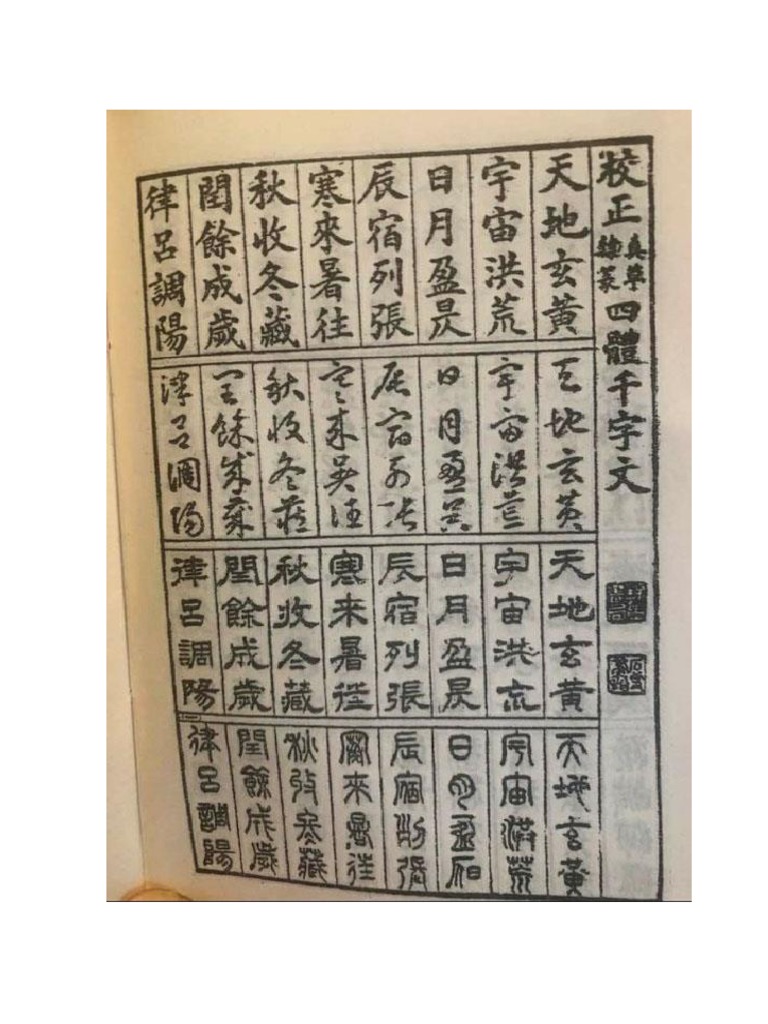 校正真草隸篆四體千字文
天地玄黃
宇宙洪荒
日月盈昃
辰宿列張
寒來暑往
秋收冬藏
閏餘成歲
律呂調陽
天地玄黃
宇宙洪荒
日月盈昃
辰宿列張
寒來暑往
秋收冬藏
閏餘成歲
律呂調陽
天地玄黃
宇宙洪荒
日月盈昃
辰宿列張
寒來暑往
秋收冬藏
閏餘成歲
律呂調陽
天地玄黃
宇宙洪荒
日月盈昃
辰宿列張
寒來暑往
秋收冬藏
閏餘成歲
律呂調陽